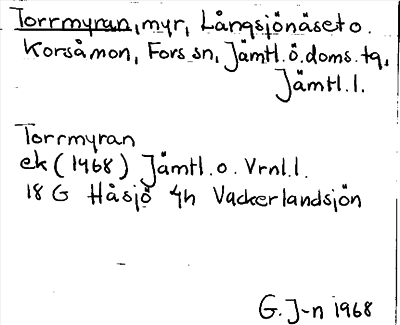 Torrmyran, myr, Långsjönäset o.
Korsåmon, Fors sn, Jämtl.ö.doms.tg,
Jämtl.l.
Torrmyran
ek (1968) Jämtl.o. Vrnl.l.
18 G Håsjö 4h Vackerlandsjön
G. J-n 1968